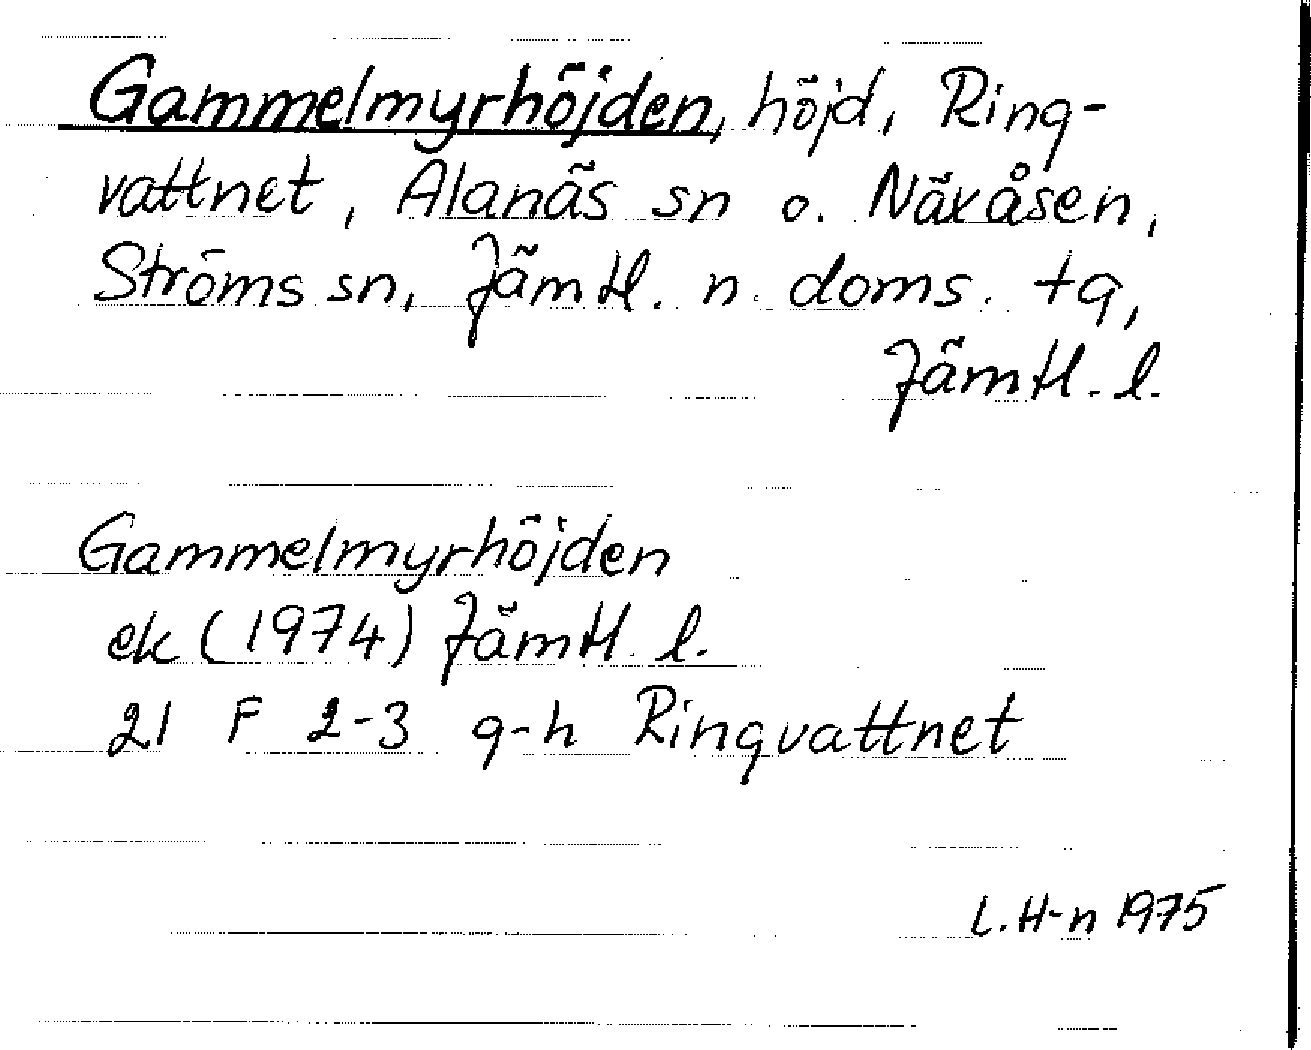 Gammelmyrhöjden, höjd, Ring-
vattnet, Alanäs sn o. Näxåsen,
Ströms sn, Jämtl. n. doms. tg,
Jämtl. l.
Gammelmyrhöjden
ek (1974) Jämtl. l.
21 F 2-3 g-h Ringvattnet
L. H-n 1975